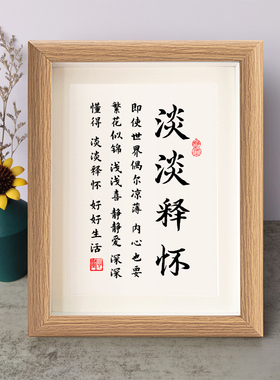 淡淡释怀
即使世界偶尔凉薄 内心也要
繁花似锦 浅浅喜 静静爱 深深
懂得 淡淡释怀 好好生活